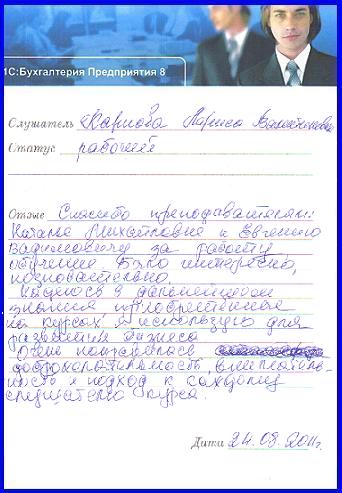 1С:Бухгалтерия Предприятия 8
Слушатель Карпова Лариса Валентиновна
Статус работаю
Отзыв Спасибо преподавателям:
Наталье Михайловне и Евгению
Вадимовичу за работу
обучение. Было интересно,
познавательно.
Надеюсь в дальнейшем
знания, приобретенные
на курсах я использую для
развития бизнеса
Очень понравилась
доброжелательность, вниматель-
ность и подход к каждому
слушателю курса.
Дата 24.09.2011г.